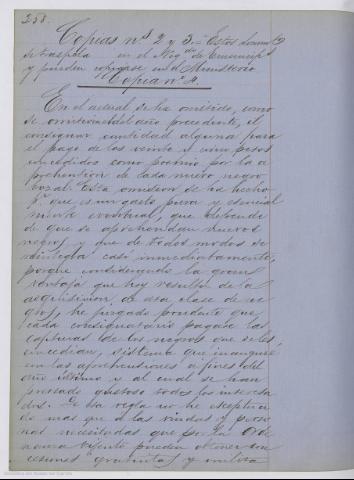 258.
Copias nº 2 y 3 = Estos docum.tos
se traspola en el Neg.do de Emancip.s
y pueden copiarse en el Ministerio
Copia nº 2.
En el actual se ha omitido, como
se omitió en el del año precedente, el
consignar cantidad alguna para
el pago de los veinte y cinco pesos
concedidos como premio por la a
prehension de cada nuevo negro
bozal. Esta omision se ha hecho
p.r que es un gasto pura y esencial
mente eventual, que depende
de que se aprehendan nuevos
negros y que de todos modos se
reintegra casi inmediatamente,
porque considerando la gran
ventaja que hoy resulta de la
adquisicion de esa clase de ne
gros, he juzgado prudente que
cada consignatario pague las
capturas de los negros que se les
concedian, sistema que inauguré
en las aprehensiones a fines del
año último y al cual se han
prestado gustosos todos los interesa
dos. De esta regla no he exceptua
do mas que a las viudas y perso
nas necesitadas que por la Orde
nanza vijente pueden obtener con
cesiones gratuitas y